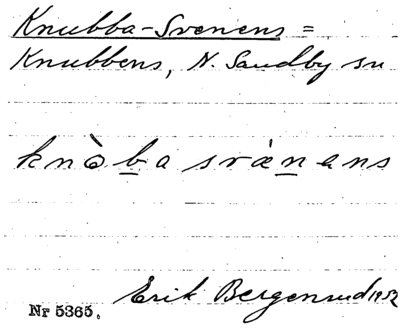 Knubba-Svenens =
Knubbens, N. Sandby sn
knò̱ba svæ̀ṉans
Erik Bergenrud 1952
Nr 5365.